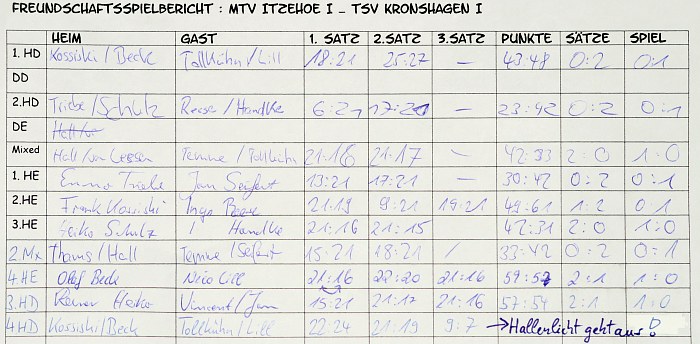 FREUNDSCHAFTSSPIELBERICHT : MTV ITZEHOE I - TSV KRONSHAGEN I
HEIM GAST 1. SATZ 2.SATZ 3.SATZ PUNKTE SÄTZE SPIEL
1. HD Kossiski/Beck Tollkühn/Lill 18:21 25:27 – 43:48 0:2 0:1
DD
2.HD /Schulz Reese/Handke 6:21 17:21 – 23:42 0:2 0:1
DE
Mixed Hall/ Temme/Tollkühn 21:16 21:17 – 42:33 2:0 1:0
1. HE Jan Seifert 13:21 17:21 – 30:42 0:2 0:1
2.HE Frank Kossiski Ingo Reese 21:19 9:21 19:21 49:61 1:2 0:1
3.HE Heiko Schulz / Handke 21:16 21:15 42:31 2:0 1:0
2.Mx Thoms/Hall Temme/Seifert 15:21 18:21 / 33:42 0:2 0:1
4.HE Olaf Beck Nico Lill 21:16 22:20 21:16 2:1 1:0
3.HD Rainer Vincent/Jan 15:21 21:17 21:16 57:54 2:1 1:0
4HD Kossiski/Beck Tollkühn/Lill 22:24 21:19 9:7 →Hallenlicht geht aus!